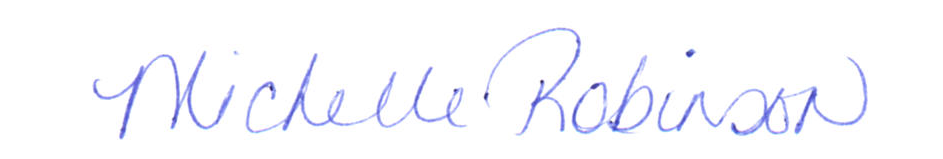 Michelle Robinson